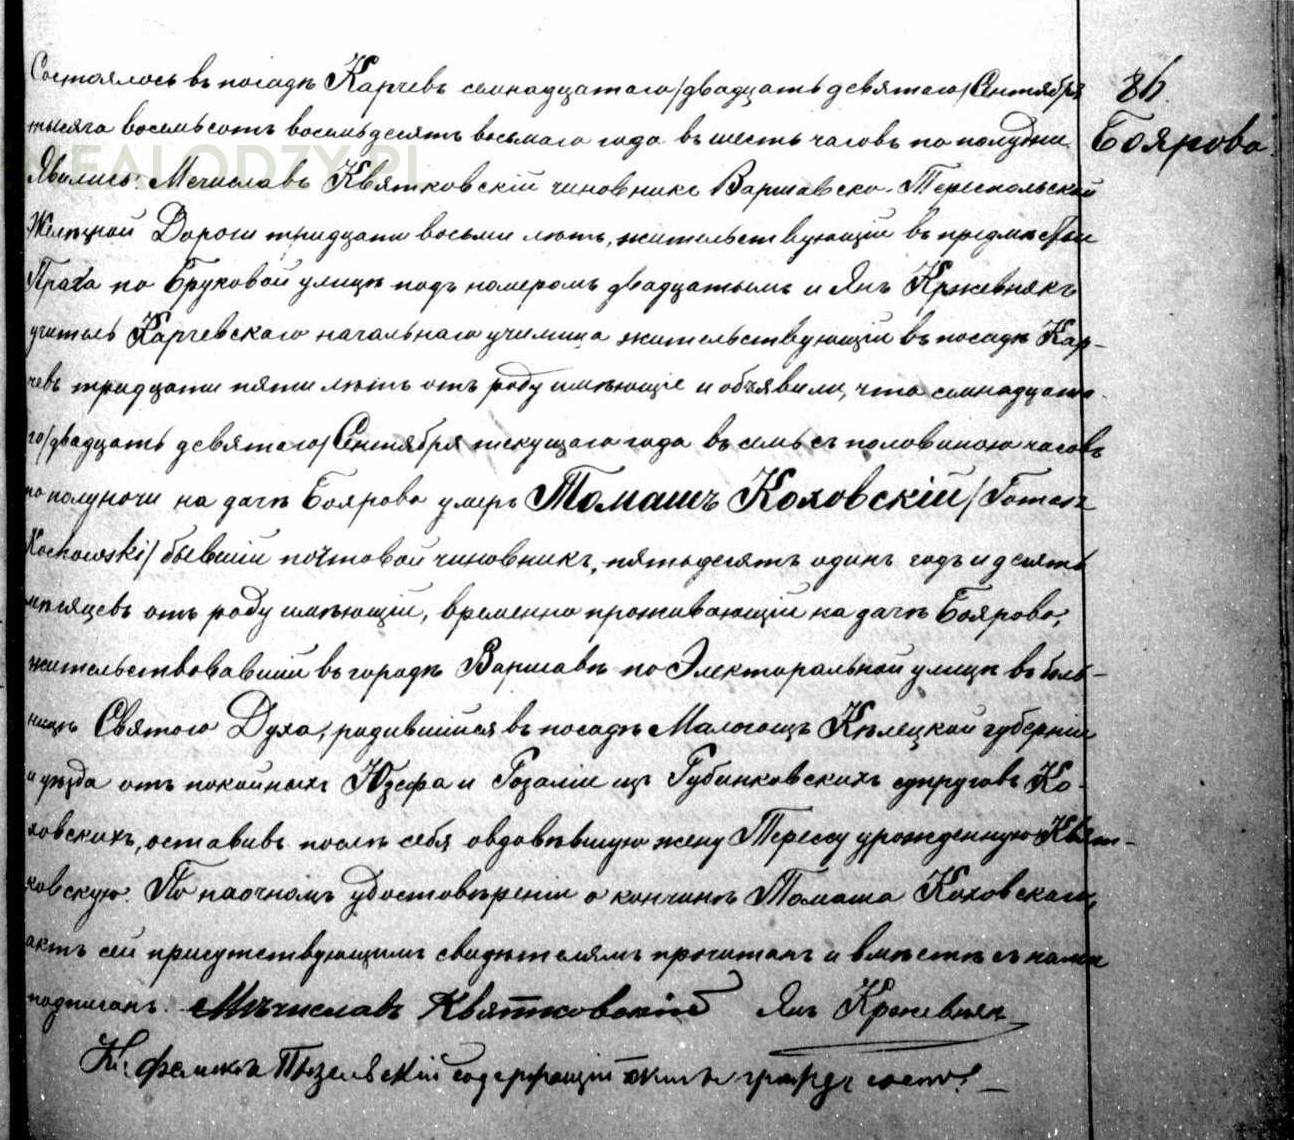 Состоялось въ посадѣ Карчевѣ семнадцатаго /двадцать девятаго/ Сентября
86.
тысяча восемьсотъ восемьдесятъ восьмаго года въ шесть часовъ по полудни.
Боярово.
NEALODZY.PL
Явились: Мечиславъ Квятковскій чиновникъ Варшавско-Тереспольской
Желѣзной Дороги тридцати восьми лѣтъ, жительствующій въ предмѣстьи
Прага по Бруковой улицѣ подъ номеромъ двадцатымъ и Янъ Кржевнякъ
учитель Карчевскаго начальнаго училища жительствующій въ посадѣ Кар-
чевъ тридцати пяти лѣтъ отъ роду имѣющіе и объявили, что семнадцата-
го /двадцать девятаго/ Сентября текущаго года въ семь съ половиною часовъ
по полуночи на дачѣ Боярово умеръ Томашъ Коховскій /Томаsz
Kochowski/ бывшій почтовой чиновникъ, пятьдесятъ одинъ годъ и девять
мѣсяцевъ отъ роду имѣющій, временно проживающій на дачѣ Боярово,
жительствовавшій въ городѣ Варшавѣ по Электоральной улицѣ въ боль-
ницѣ Святого Духа, родившійся въ посадѣ Малогощъ Кѣлецкой губерніи
и уѣзда отъ покойныхъ Юзефа и Розаліи изъ Губинковскихъ супруговъ Ко-
ховскихъ, оставивъ послѣ себя овдовѣвшую жену Терессу урожденную Квят-
ковскую. По наочномъ удостовѣреніи о кончинѣ Томаша Коховскаго,
актъ сей присутствующимъ свидѣтелямъ прочитанъ и вмѣстѣ съ нами
подписанъ. Мѣчиславъ Квятковскій Янъ Кржевнякъ
Кс. Феликсъ Пызельскій содержащій акты гражд. сост.